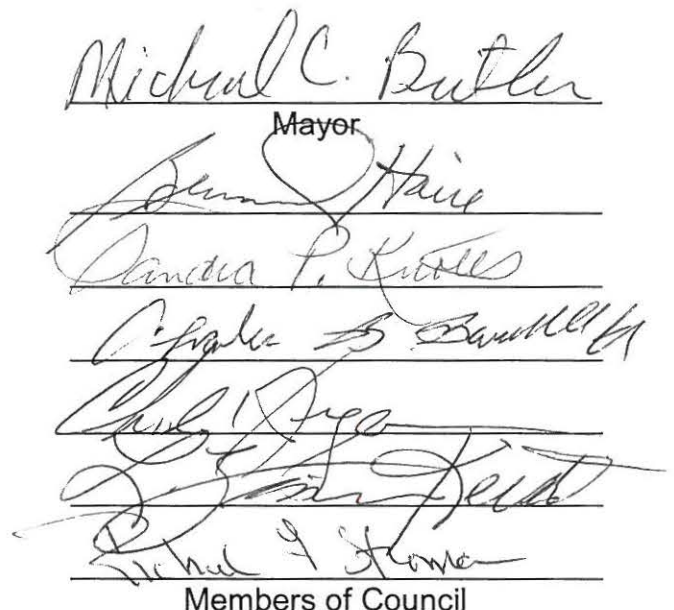 Michael C. Butler
Mayor
Haire
Sandra P. Knotts
Charles B. Barnwell Jr
Keitt
Richard F. Stroman
Members of Council